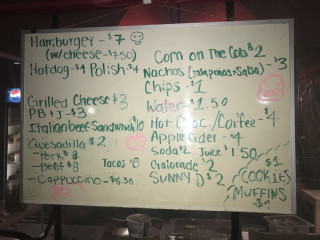 Hamburger - $7
(w/cheese - $7.50)
Hotdog - $4 Polish - $4
Grilled Cheese $3
PB + J - $3
Italian beef Sandwich $10
Quesadilla $2
- Pork $8
- Beef $8
Tacos $8
- Cappuccino - $5.50
Corn on The Cob $2
Nachos (jalapenos + Salsa) - $3
Chips - $1
Water - $1.50
Hot Choc. / Coffee - $4
Apple Cider - $4
Soda $2 Juice $1.50
Gatorade $2
SUNNY D $2
$1
COOKIES
MUFFINS